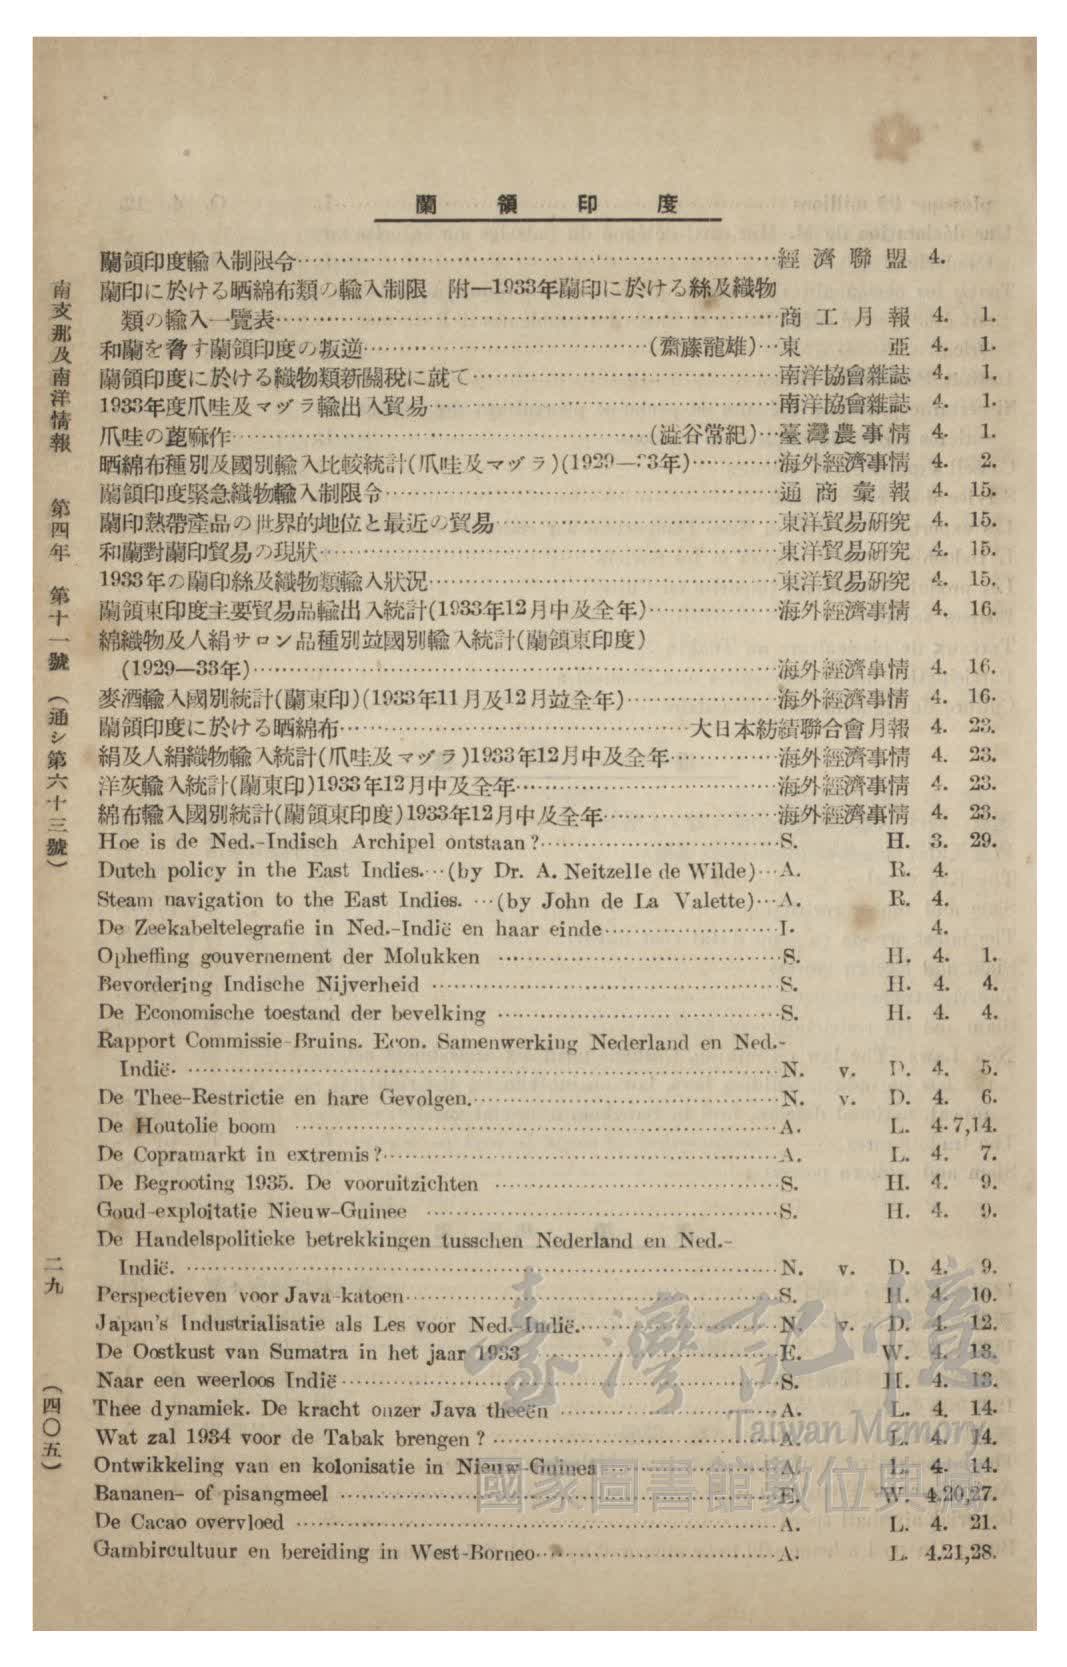 蘭領印度
蘭領印度輸入制限令……經濟聯盟 4.
蘭印に於ける晒綿布類の輸入制限 附—1933年蘭印に於ける絲及織物
類の輸入一覽表……商工月報 4. 1.
和蘭を脅す蘭領印度の叛逆……(齋藤龍雄)…東亞 4. 1.
蘭領印度に於ける織物類新關稅に就て……南洋協會雜誌 4. 1.
1933年度爪哇及マヅラ輸出入貿易……南洋協會雜誌 4. 1.
爪哇の蓖麻作……(澁谷常紀)…臺灣農事情 4. 1.
晒綿布種別及國別輸入比較統計(爪哇及マヅラ)(1929—33年)……海外經濟事情 4. 2.
蘭領印度緊急織物輸入制限令……通商彙報 4. 15.
蘭印熱帶產品の世界的地位と最近の貿易……東洋貿易硏究 4. 15.
和蘭對蘭印貿易の現狀……東洋貿易硏究 4. 15.
1933年の蘭印絲及織物類輸入狀況……東洋貿易硏究 4. 15.
蘭領東印度主要貿易品輸出入統計(1933年12月中及全年)……海外經濟事情 4. 16.
綿織物及人絹サロン品種別竝國別輸入統計(蘭領東印度)
(1929—33年)……海外經濟事情 4. 16.
麥酒輸入國別統計(蘭東印)(1933年11月及12月竝全年)……海外經濟事情 4. 16.
蘭領印度に於ける晒綿布……大日本紡績聯合會月報 4. 23.
絹及人絹織物輸入統計(爪哇及マヅラ)1933年12月中及全年……海外經濟事情 4. 23.
洋灰輸入統計(蘭東印)1933年12月中及全年……海外經濟事情 4. 23.
綿布輸入國別統計(蘭領東印度)1933年12月中及全年……海外經濟事情 4. 23.
Hoe is de Ned.-Indisch Archipel ontstaan?……S. H. 3. 29.
Dutch policy in the East Indies.…(by Dr. A. Neitzelle de Wilde)…A. R. 4.
Steam navigation to the East Indies. …(by John de La Valette)…A. R. 4.
De Zeekabeltelegrafie in Ned.-Indië en haar einde……I. 4.
Opheffing gouvernement der Molukken ……S. H. 4. 1.
Bevordering Indische Nijverheid ……S. H. 4. 4.
De Economische toestand der bevelking ……S. H. 4. 4.
Rapport Commissie-Bruins. Econ. Samenwerking Nederland en Ned.-
Indië. ……N. v. D. 4. 5.
De Thee-Restrictie en hare Gevolgen.……N. v. D. 4. 6.
De Houtolie boom ……A. L. 4.7,14.
De Copramarkt in extremis?……A. L. 4. 7.
De Begrooting 1935. De vooruitzichten ……S. H. 4. 9.
Goud-exploitatie Nieuw-Guinee ……S. H. 4. 9.
De Handelspolitieke betrekkingen tusschen Nederland en Ned.-
Indië. ……N. v. D. 4. 9.
Perspectieven voor Java-katoen……S. H. 4. 10.
Japan's Industrialisatie als Les voor Ned.-Indië.……N. v. D. 4. 12.
De Oostkust van Sumatra in het jaar 1933……E. W. 4. 13.
Naar een weerloos Indië……S. H. 4. 13.
Thee dynamiek. De kracht onzer Java theeën ……A. L. 4. 14.
Wat zal 1934 voor de Tabak brengen? ……A. L. 4. 14.
Ontwikkeling van en kolonisatie in Nieuw-Guinea……A. L. 4. 14.
Bananen- of pisangmeel ……E. W. 4.20,27.
De Cacao overvloed ……A. L. 4. 21.
Gambircultuur en bereiding in West-Borneo……A. L. 4.21,28.
南支那及南洋情報 第四年 第十一號 (通シ第六十三號)
二九
(四〇五)
臺灣記憶
Taiwan Memory
國家圖書館數位典藏